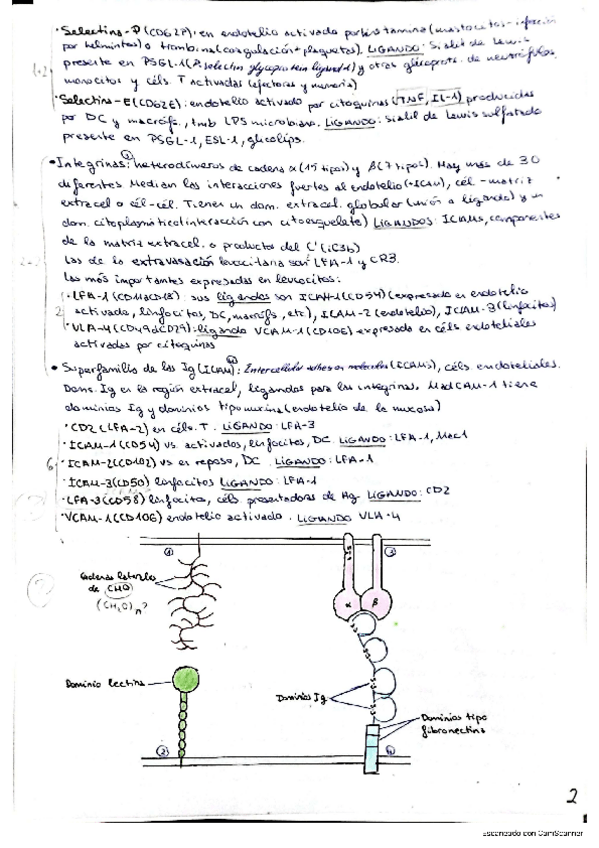 · Selectina-P (CD62P): en endotelio activado por histamina (mastocitos-infección
por helmintos) o trombina (coagulación+plaquetas). LIGANDO: Sialil de Lewis
presente en PSGL-1 (P. selectin glycoprotein ligand 1) y otras glicoprot. de neutrófilos,
monocitos y céls. T activadas (efectoras y memoria)
· Selectina-E (CD62E): endotelio activado por citoquinas (TNF, IL-1) producidas
por DC y macróf., tmb LPS microbiano. LIGANDO: sialil de Lewis sulfatado
presente en PSGL-1, ESL-1, glicolíp.
• Integrinas: heterodímeros de cadena α (15 tipos) y β (7 tipos). Hay más de 30
diferentes. Median las interacciones fuertes al endotelio (+ICAM), cél-matriz
extracel o cél-cél. Tienen un dom. extracel. globular (unión a ligando) y un
dom. citoplasmático (interacción con citoesqueleto) LIGANDOS: ICAMs, componentes
de la matriz extracel. o productos del C' (iC3b)
Las de la extravasación leucocitaria son LFA-1 y CR3.
Las más importantes expresadas en leucocitos:
· LFA-1 (CD11aCD18): sus ligandos son ICAM-1 (CD54) (expresada en endotelio
2 activado, linfocitos, DC, macrófs, etc), ICAM-2 (endotelio), ICAM-3 (linfocitos)
· VLA-4 (CD49dCD29): ligando VCAM-1 (CD106) expresada en céls endoteliales
activadas por citoquinas
• Superfamilia de las Ig (ICAM): Intercellular adhesion molecules (ICAMs), céls endoteliales.
Doms. Ig en la región extracel, ligandos para las integrinas. MadCAM-1 tiene
dominios Ig y dominios tipo mucina (endotelio de la mucosa)
· CD2 (LFA-2) en céls. T. LIGANDO: LFA-3
· ICAM-1 (CD54) vs. activados, linfocitos, DC. LIGANDO: LFA-1, Mac1
6 · ICAM-2 (CD102) vs en reposo, DC. LIGANDO: LFA-1
· ICAM-3 (CD50) linfocitos LIGANDO: LFA-1
· LFA-3 (CD58) linfocitos, céls. presentadoras de Ag. LIGANDO: CD2
· VCAM-1 (CD106) endotelio activado. LIGANDO VLA-4
1
3
Cadenas laterales
de CHO
(CH₂O)n?
α β
Dominio lectina
Dominios Ig
Dominios tipo
fibronectina
2
4
2
Escaneado con CamScanner